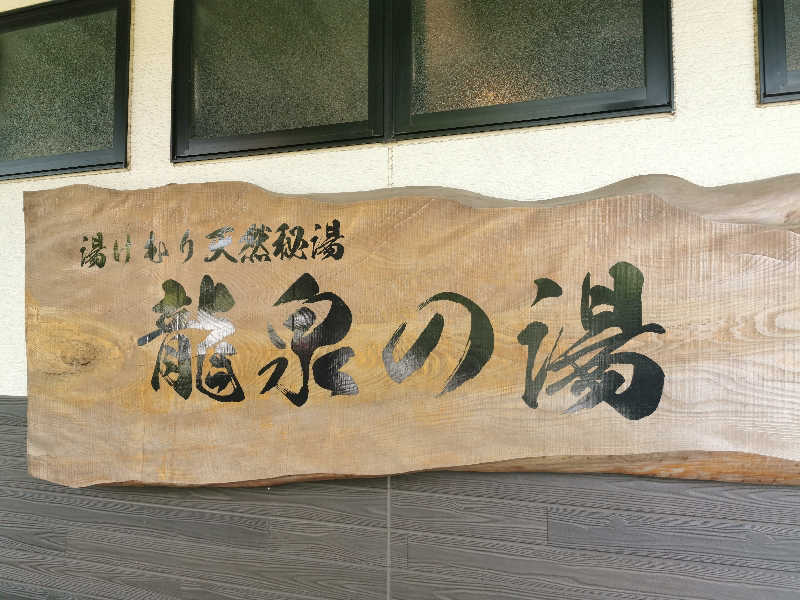 湯けむり天然秘湯
龍泉の湯